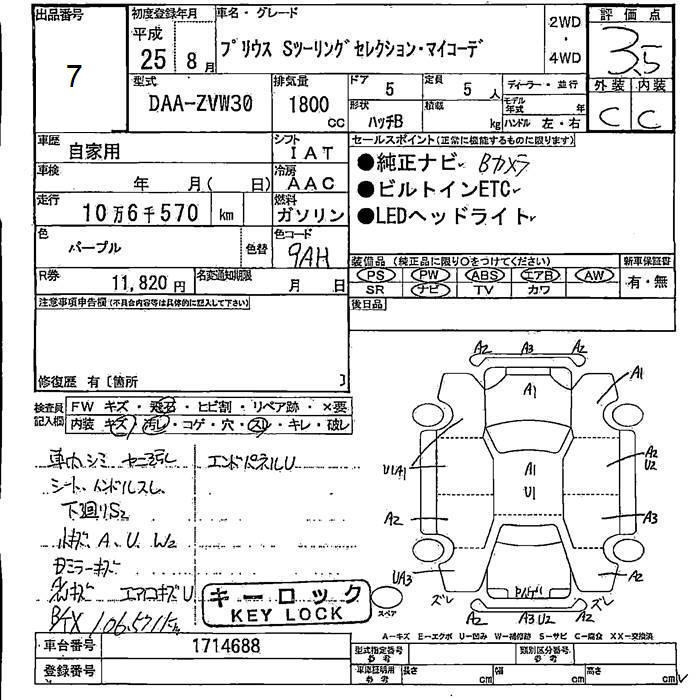 出品番号
7
初度登録年月
平成
25年
8月
車名・グレード
プリウス Sツーリングセレクション・マイコーデ
2WD
・
4WD
評価点
3.5
外装 内装
C C
型式
DAA-ZVW30
排気量
1800
CC
ドア
5
定員
5人
形状
ハッチB
積載
kg
ディーラー・並行
モデル年式 年
ハンドル 左・右
車歴
自家用
シフト
IAT
車検
年 月( 日)
冷房
AAC
走行
10万6千570 km
燃料
ガソリン
色
パープル
色替
色コード
9AH
R券
11,820円
名変通知期限
月 日
セールスポイント(正常に機能するものに限ります)
●純正ナビ Bカメラ
●ビルトインETC
●LEDヘッドライト
装備品(純正品に限り○をつけてください)
PS PW ABS エアB AW
SR ナビ TV カワ
新車保証書
有・無
後日品
注意事項申告欄(不具合内容等は具体的に記入して下さい)
修復歴 有〔箇所 〕
検査員記入欄
FW キズ・飛石・ヒビ割・リペア跡・×要
内装 キズ・汚レ・コゲ・穴・スレ・キレ・破レ
車内シミ ヤニ汚レ
エンドパネルU
シート、ハンドルスレ
下廻りS2
A、U、W2
ミラーキズ
エアロキズU
106,571km
キーロック
KEY LOCK
スペア
A2 A3 A2
A1
A1
UA1
A1
U1
A2
U2
A2
A3
UA3
ズレ
A2 A3 U2 A2
ズレ
A-キズ E-エクボ U-凹み W-補修跡 S-サビ C-腐食 XX-交換済
車台番号
1714688
登録番号
型式指定番号
参考
類別区分番号
参考
車庫証明用
参考
長さ cm
幅 cm
高さ cm